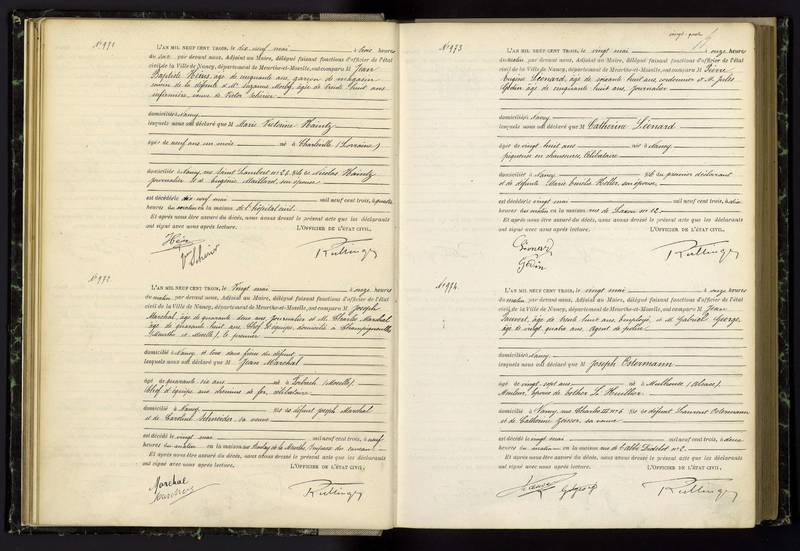 N° 971
L'AN MIL NEUF CENT TROIS, le dix neuf mai à trois heures
du soir par devant nous, Adjoint au Maire, délégué faisant fonctions d'officier de l'état
civil de la Ville de Nancy, département de Meurthe-et-Moselle, ont comparu M Jean
Baptiste âgé de cinquante ans, garçon de magasin
de la défunte et Me Suzanne âgée de trente huit ans
infirmière, veuve de Victor
domiciliés à Nancy
lesquels nous ont déclaré que M Marie Victorine Haintz
âgée de neuf ans un mois née à Charleville (Lorraine)
domiciliée à Nancy, rue Saint Lambert n° 24 fille de Nicolas Haintz
journalier et de Eugénie Maillard, son épouse
est décédée dix neuf mai mil neuf cent trois, à
heures du matin en la maison de l'hôpital civil
Et après nous être assuré du décès, nous avons dressé le présent acte que les déclarants
ont signé avec nous après lecture. L'OFFICIER DE L'ÉTAT CIVIL,
N° 972
L'AN MIL NEUF CENT TROIS, le vingt mai à onze heures
du matin par devant nous, Adjoint au Maire, délégué faisant fonctions d'officier de l'état
civil de la Ville de Nancy, département de Meurthe-et-Moselle, ont comparu M Joseph
Marchal, âgé de quarante deux ans journalier et M. Charles Marchal
âgé de quarante huit ans, Chef d'équipe, domicilié à Champigneulles
(Meurthe et Moselle), le premier
domicilié à Nancy et tous deux frères du défunt
lesquels nous ont déclaré que M Jean Marchal
âgé de quarante six ans né à Forbach (Moselle)
Chef d'équipe aux chemins de fer, célibataire
domicilié à Nancy fils de défunt Joseph Marchal
et de Caroline Schneider sa veuve
est décédé le vingt mai mil neuf cent trois, à neuf
heures du matin en la maison
Et après nous être assuré du décès, nous avons dressé le présent acte que les déclarants
ont signé avec nous après lecture. L'OFFICIER DE L'ÉTAT CIVIL,
Marchal
vingt quatre
N° 973
L'AN MIL NEUF CENT TROIS, le vingt mai à onze heures
du matin par devant nous, Adjoint au Maire, délégué faisant fonctions d'officier de l'état
civil de la Ville de Nancy, département de Meurthe-et-Moselle, ont comparu M Pierre
Eugène Léonard, âgé de soixante huit ans, cordonnier et M. Jules
âgé de cinquante huit ans, journalier
domiciliés à Nancy
lesquels nous ont déclaré que M Catherine Léonard
âgée de vingt huit ans née à Nancy
piqueuse en chaussures, célibataire
domiciliée à Nancy fille du premier déclarant
et de défunte Marie son épouse
est décédée vingt mai mil neuf cent trois, à
heures du matin en la maison rue de n° 12
Et après nous être assuré du décès, nous avons dressé le présent acte que les déclarants
ont signé avec nous après lecture. L'OFFICIER DE L'ÉTAT CIVIL,
Léonard
N° 974
L'AN MIL NEUF CENT TROIS, le vingt mai à onze heures
du matin par devant nous, Adjoint au Maire, délégué faisant fonctions d'officier de l'état
civil de la Ville de Nancy, département de Meurthe-et-Moselle, ont comparu M Jean
âgé de trente huit ans, employé, et M. Gabriel George,
âgé de vingt quatre ans, agent de police
domiciliés à Nancy
lesquels nous ont déclaré que M Joseph Ostermann
âgé de vingt sept ans né à Mulhouse (Alsace)
Mouleur, époux de Esther
domicilié à Nancy, rue Charles III n° 6 fils de défunt Ostermann
et de Catherine sa veuve
est décédé le vingt mai mil neuf cent trois, à deux
heures du matin en la maison rue de l'abbé Didelot n° 2
Et après nous être assuré du décès, nous avons dressé le présent acte que les déclarants
ont signé avec nous après lecture. L'OFFICIER DE L'ÉTAT CIVIL,